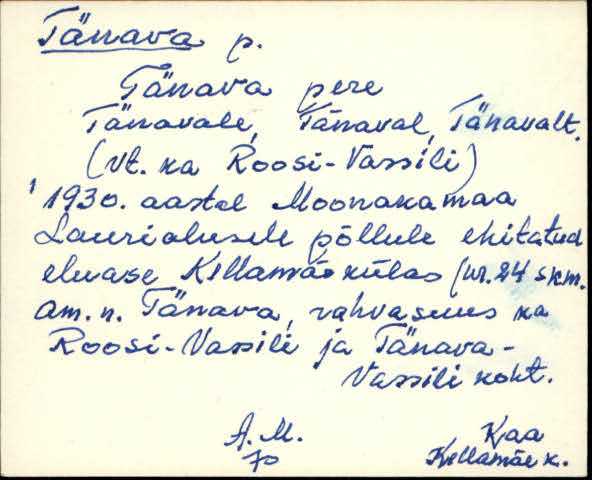 Tänava p.
Tänava pere
Tänavale, Tänaval, Tänavalt.
(vt. ka Roosi-Vassili)
1930. aastal Moonakamaa
Laurialusele põllule ehitatud
eluase Kellamäe külas (nr. 24 skm.
am. n. Tänava, rahvasuus ka
Roosi-Vassili ja Tänava-
Vassili koht.
A. M. Kaa
70 Kellamäe k.